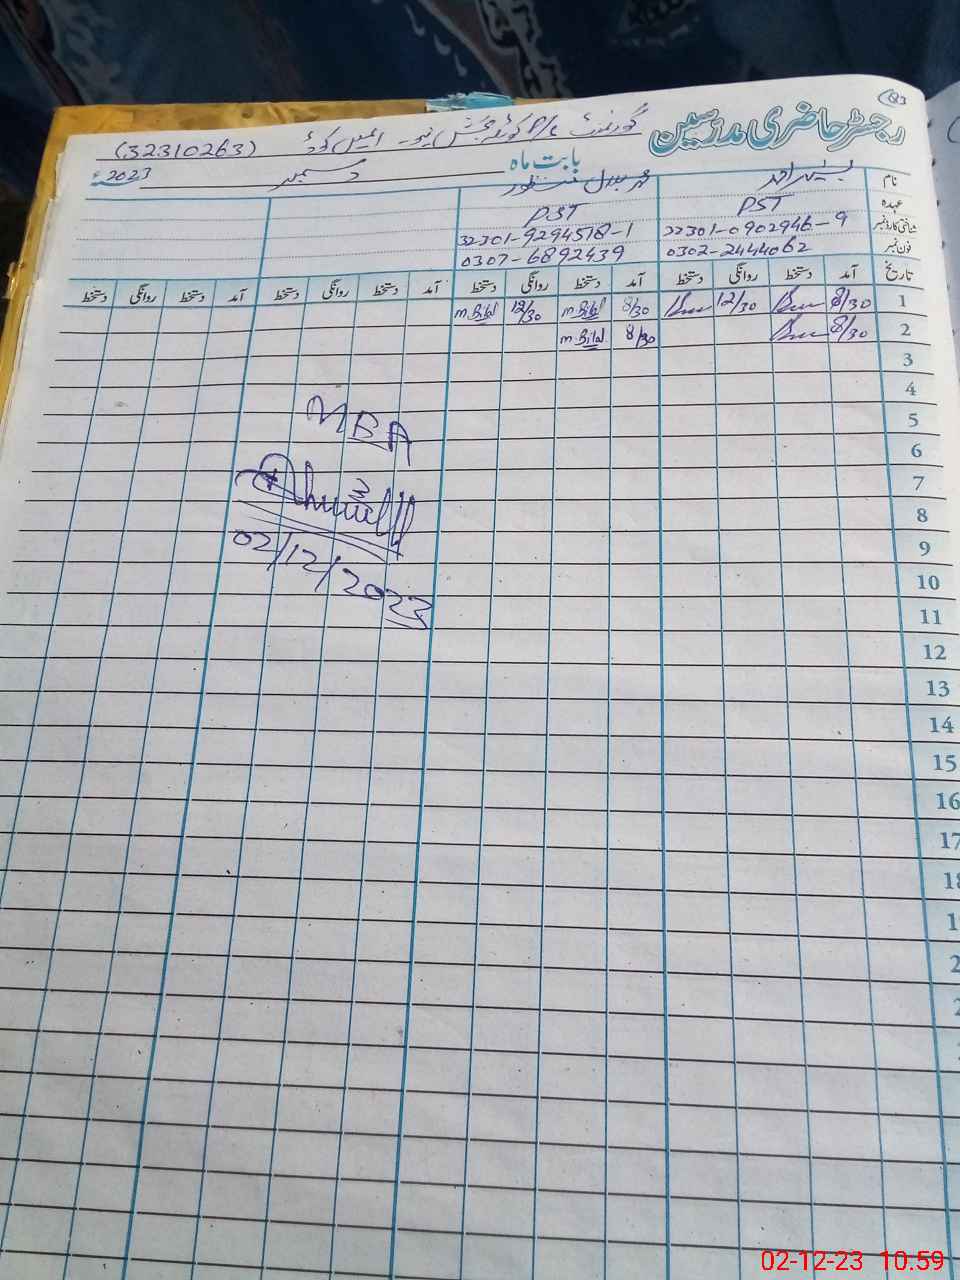 رجسٹر حاضری مدرسین
(32310263)
بابت ماہ دسمبر 2023ء
نام بشیر احمد محمد بلال منظور
عہدہ PST PST
شناختی کارڈ نمبر 32301-0902946-9 32301-9294518-1
فون نمبر 0302-2444062 0307-6892439
تاریخ آمد دستخط روانگی دستخط آمد دستخط روانگی دستخط آمد دستخط روانگی دستخط آمد دستخط روانگی دستخط
1 8/30 12/30 8/30 m.Bilal 12/30 m.Bilal
2 8/30 8/30 m.Bilal
3
4
5
6
7
8
9
10
11
12
13
14
15
16
17
18
MBA
02/12/2023
02-12-23 10.59